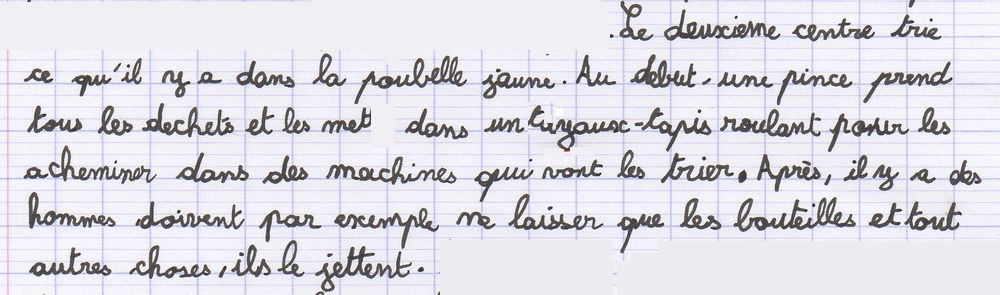 .Le deuxieme centre trie
ce qu'il y a dans la poubelle jaune. Au debut, une pince prend
tous les dechets et les met dans un tuyaux-tapis roulant pour les
acheminer dans des machines qui vont les trier. Après, il y a des
hommes doivent par exemple ne laisser que les bouteilles et tout
autres choses, ils le jettent.